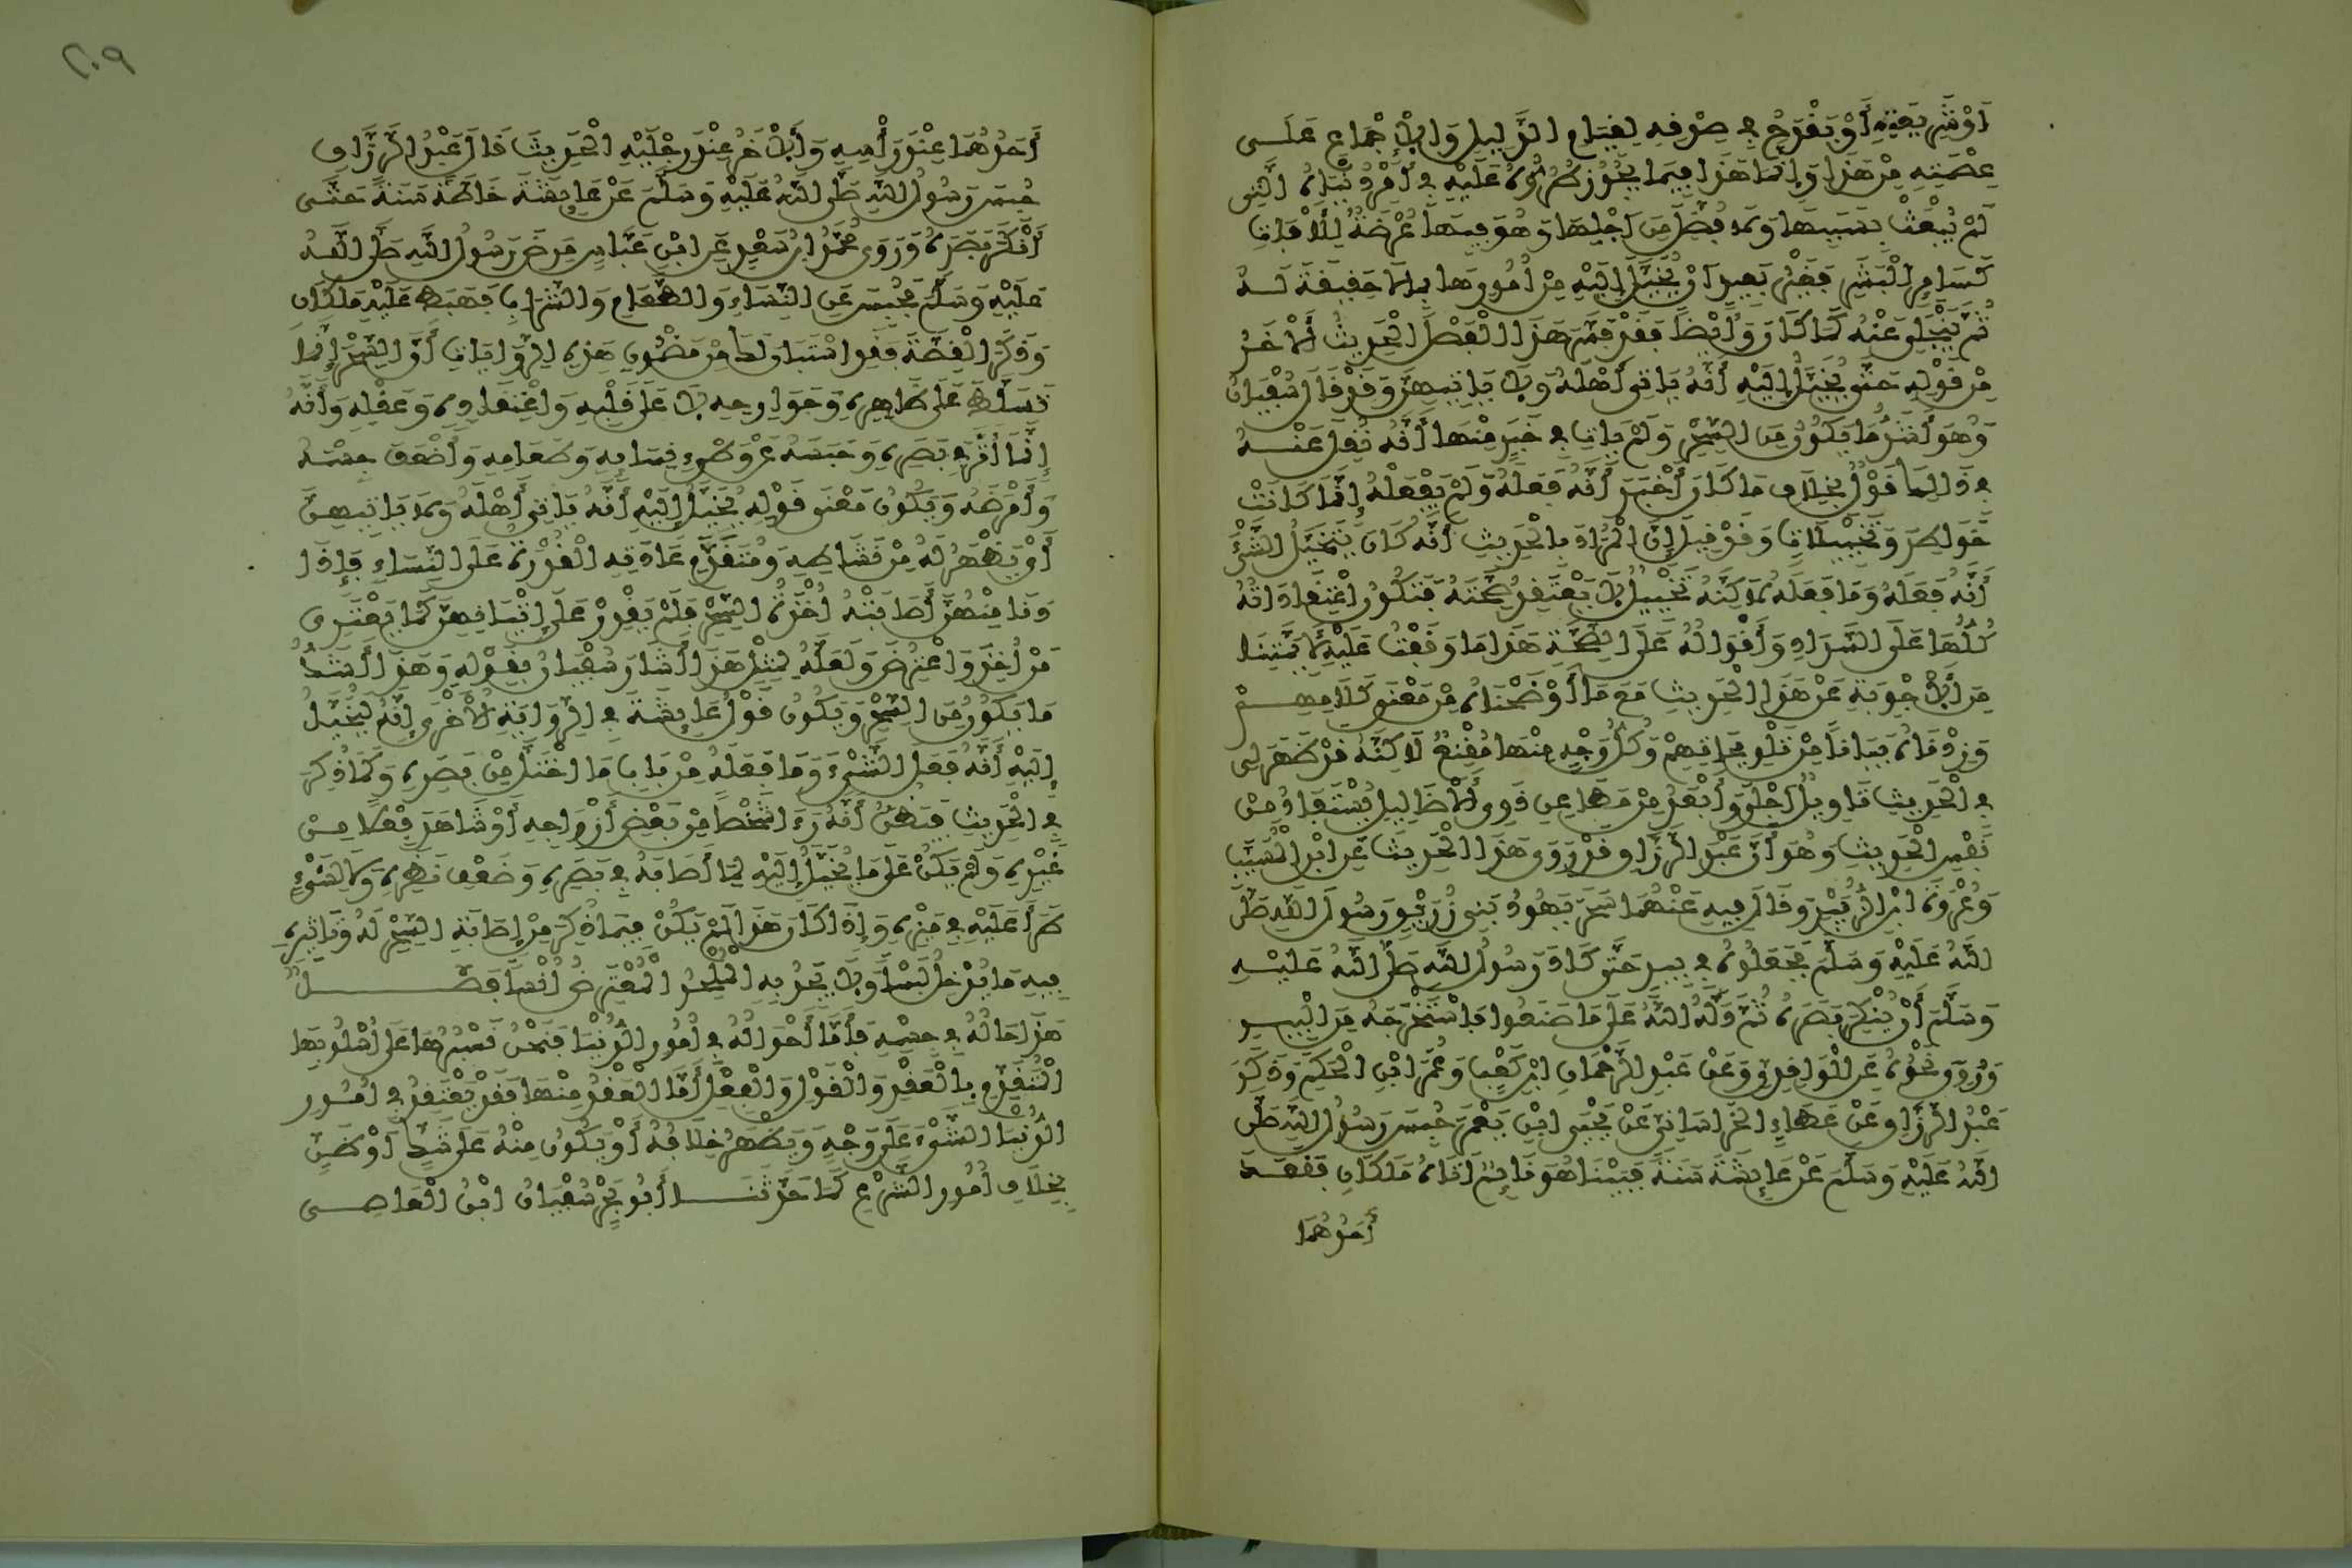 أو شريعته أو يقدح في صدقه لقيام الدليل والإجماع على
عصمته من هذا وإنما هذا فيما يجوز طروه عليه في أمر دنياه التي
لم يبعث بسببها ولا فضل من أجلها وهو فيها عرضة للآفات
كسائر البشر فغير بعيد أن يخيل إليه من أمورها ما لا حقيقة له
ثم ينجلي عنه كما كان وأيضا فقد فسر هذا الفصل الحديث الآخر
من قوله حتى يخيل إليه أنه ياتي أهله ولا ياتيهن وقد قال سفيان
وهو أشد ما يكون من السحر ولم يات في خبر منها أنه نقل عنه
في ذلك قول بخلاف ما كان أخبر أنه فعله ولم يفعله إنما كانت
خواطر وتخييلات وقد قيل إن المراد بالحديث أنه كان يتخيل الشيء
أنه فعله وما فعله لاكنه تخييل لا يعتقد صحته فتكون اعتقاداته
كلها على السداد وأقواله على الصحة هذا ما وقفت عليه لأئمتنا
من الأجوبة عن هذا الحديث مع ما أوضحناه من معنى كلامهم
وزدناه بيانا من تلويحاتهم وكل وجه منها مقنع لاكنه قد ظهر لي
في الحديث تاويل أجلى وأبعد من مطاعن ذوي الأضاليل يستفاد من
نفس الحديث وهو أن عبد الرزاق قد روى هذا الحديث عن ابن المسيب
وعروة ابن الزبير وقال فيه عنهما سحر يهود بني زريق رسول الله صلى
الله عليه وسلم فجعلوه في بير حتى كاد رسول الله صلى الله عليه
وسلم أن ينكر بصره ثم دله الله على ما صنعوا فاستخرجه من البير
وروي نحوه عن الواقدي وعن عبد الرحمان ابن كعب وعمر ابن الحكم وذكر
عبد الرزاق عن عطاء الخراساني عن يحيى ابن يعمر حبس رسول الله صلى
الله عليه وسلم عن عايشة سنة فبينا هو نايم أتاه ملكان فقعد
أحدهما
٢٠٩
أحدهما عند رأسه والآخر عند رجليه الحديث قال عبد الرزاق
حبس رسول الله صلى الله عليه وسلم عن عايشة خاصة سنة حتى
أنكر بصره وروى محمد ابن سعد عن ابن عباس مرض رسول الله صلى الله
عليه وسلم فحبس عن النساء والطعام والشراب فهبط عليه ملكان
وذكر القصة فقد استبان لك من مضمون هذه الروايات أن السحر إنما
تسلط على ظاهره وجوارحه لا على قلبه واعتقاده وعقله وأنه
إنما أثر في بصره وحبسه عن وطء نسائه وطعامه وأضعف جسمه
وأمرضه ويكون معنى قوله يخيل إليه أنه ياتي أهله ولا ياتيهن
أو يظهر له من نشاطه ومتقدم عادته القدرة على النساء فإذا
دنا منهن أصابته أخذة السحر فلم يقدر على إتيانهن كما يعتري
من أخذ واعترض ولعله لمثل هذا أشار سفيان بقوله وهذا أشد
ما يكون من السحر ويكون قول عايشة في الرواية الأخرى إنه ليخيل
إليه أنه فعل الشيء وما فعله من باب ما اختل من بصره وكما ذكر
في الحديث فيظن أنه رءا شخصا من بعض أزواجه أو شاهد فعلا من
غيره ولم يكن على ما يخيل إليه لما أصابه في بصره وضعف نظره لا لشيء
طرأ عليه في ميزه وإذا كان هذا لم يكن فيما ذكر من إصابة السحر له وتاثيره
فيه ما يدخل لبسا ولا يجد به الملحد المعترض أنسا فصل
هذا حاله في جسمه فأما أحواله في أمور الدنيا فنحن نسبرها على أسلوبها
المتقدم بالعقد والقول والفعل أما العقد منها فقد يعتقد في أمور
الدنيا الشيء على وجه ويظهر خلافه أو يكون منه على شك أو ظن
بخلاف أمور الشرع كما حدثنا أبو بحر سفيان ابن العاصي